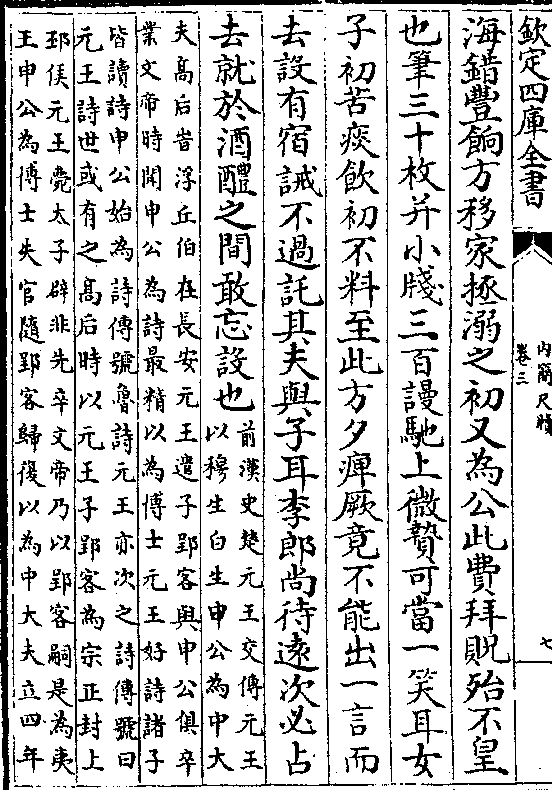 欽定四庫全書
內簡尺牘
卷三
七
海錯豐餉方移家拯溺之初又為公此費拜貺殆不皇
也筆三十枚并小牋三百謾馳上微贄可當一笑耳女
子初苦痰飲初不料至此方夕痺厥竟不能出一言而
去設有宿誡不過託其夫與子耳李郎尚待遠次必占
去就於酒醴之間敢忘設也前漢史楚元王交傳元王
以穆生白生申公為中大
夫高后旹浮丘伯在長安元王遣子郢客與申公俱卒
業文帝時聞申公為詩最精以為博士元王好詩諸子
皆讀詩申公始為詩傳號魯詩元王亦次之詩傳號曰
元王詩世或有之高后時以元王子郢客為宗正封上
邳侯元王薨太子辟非先卒文帝乃以郢客嗣是為夷
王申公為博士失官隨郢客歸復以為中大夫立四年